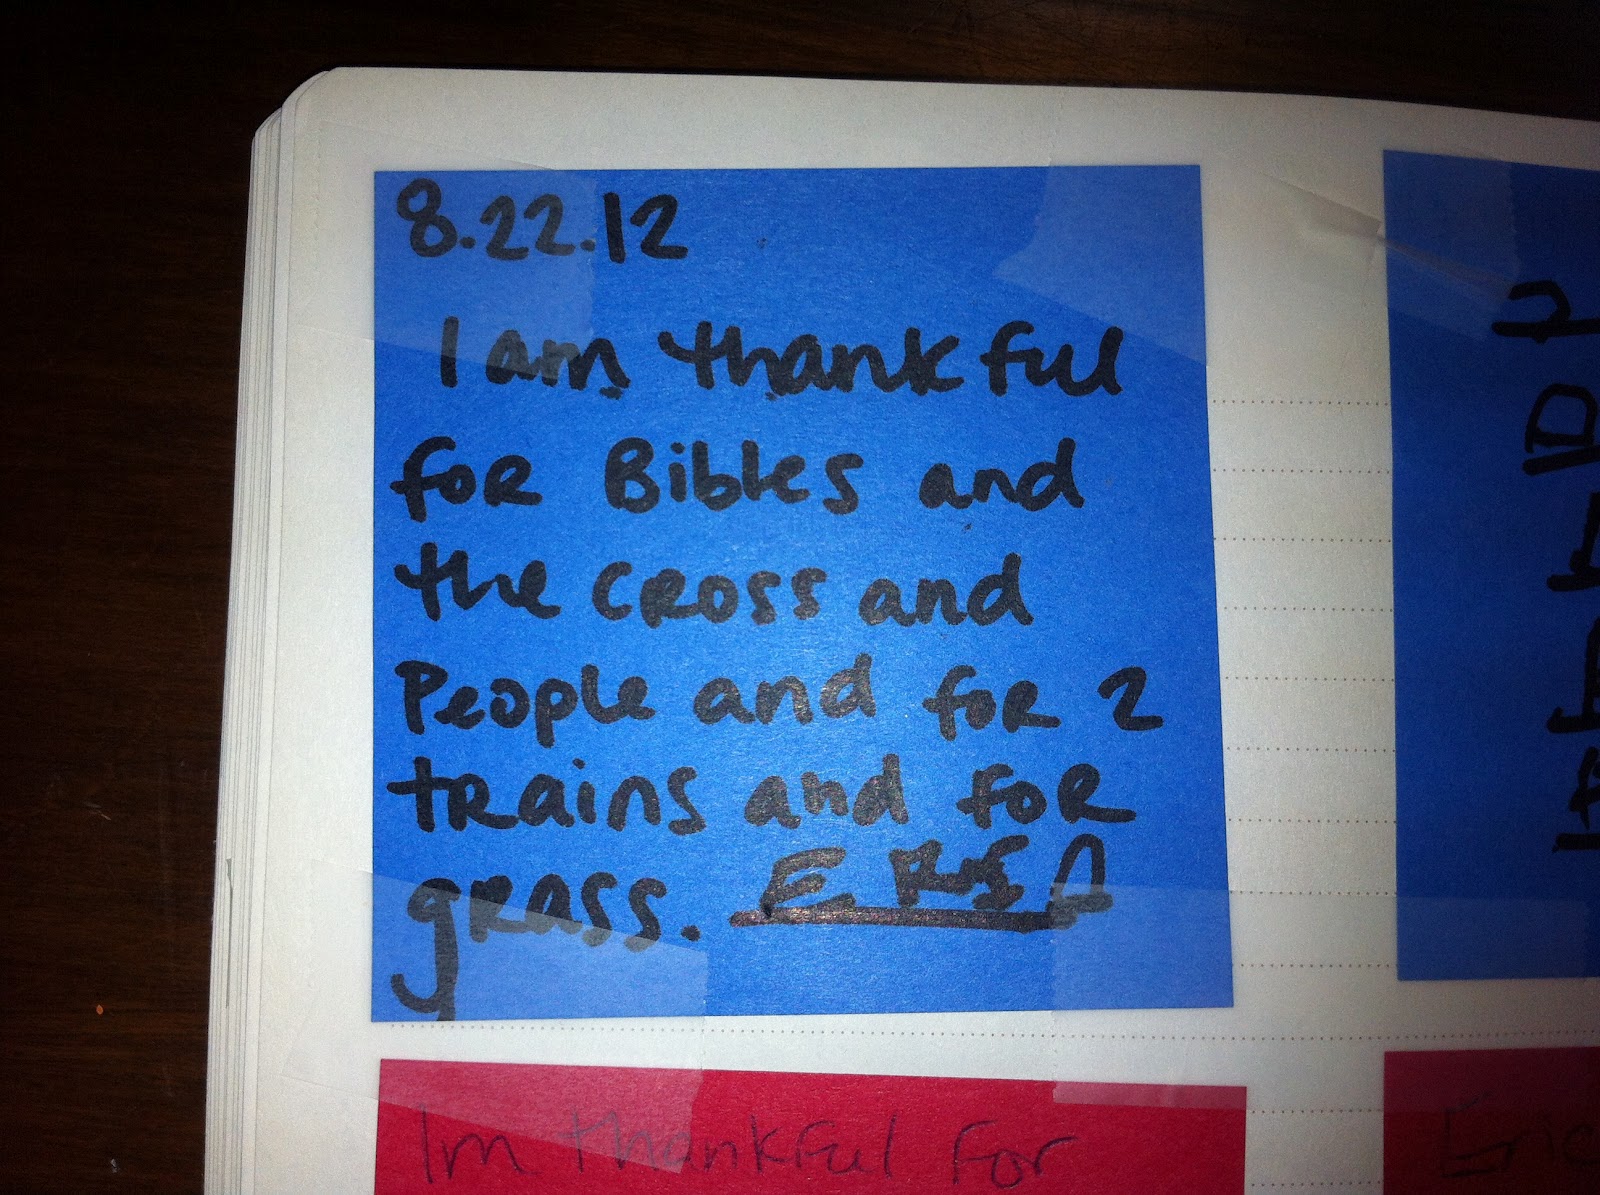 8.22.12
I am thankful
for Bibles and
the cross and
People and for 2
trains and for
grass.
Im thankful for
Eric